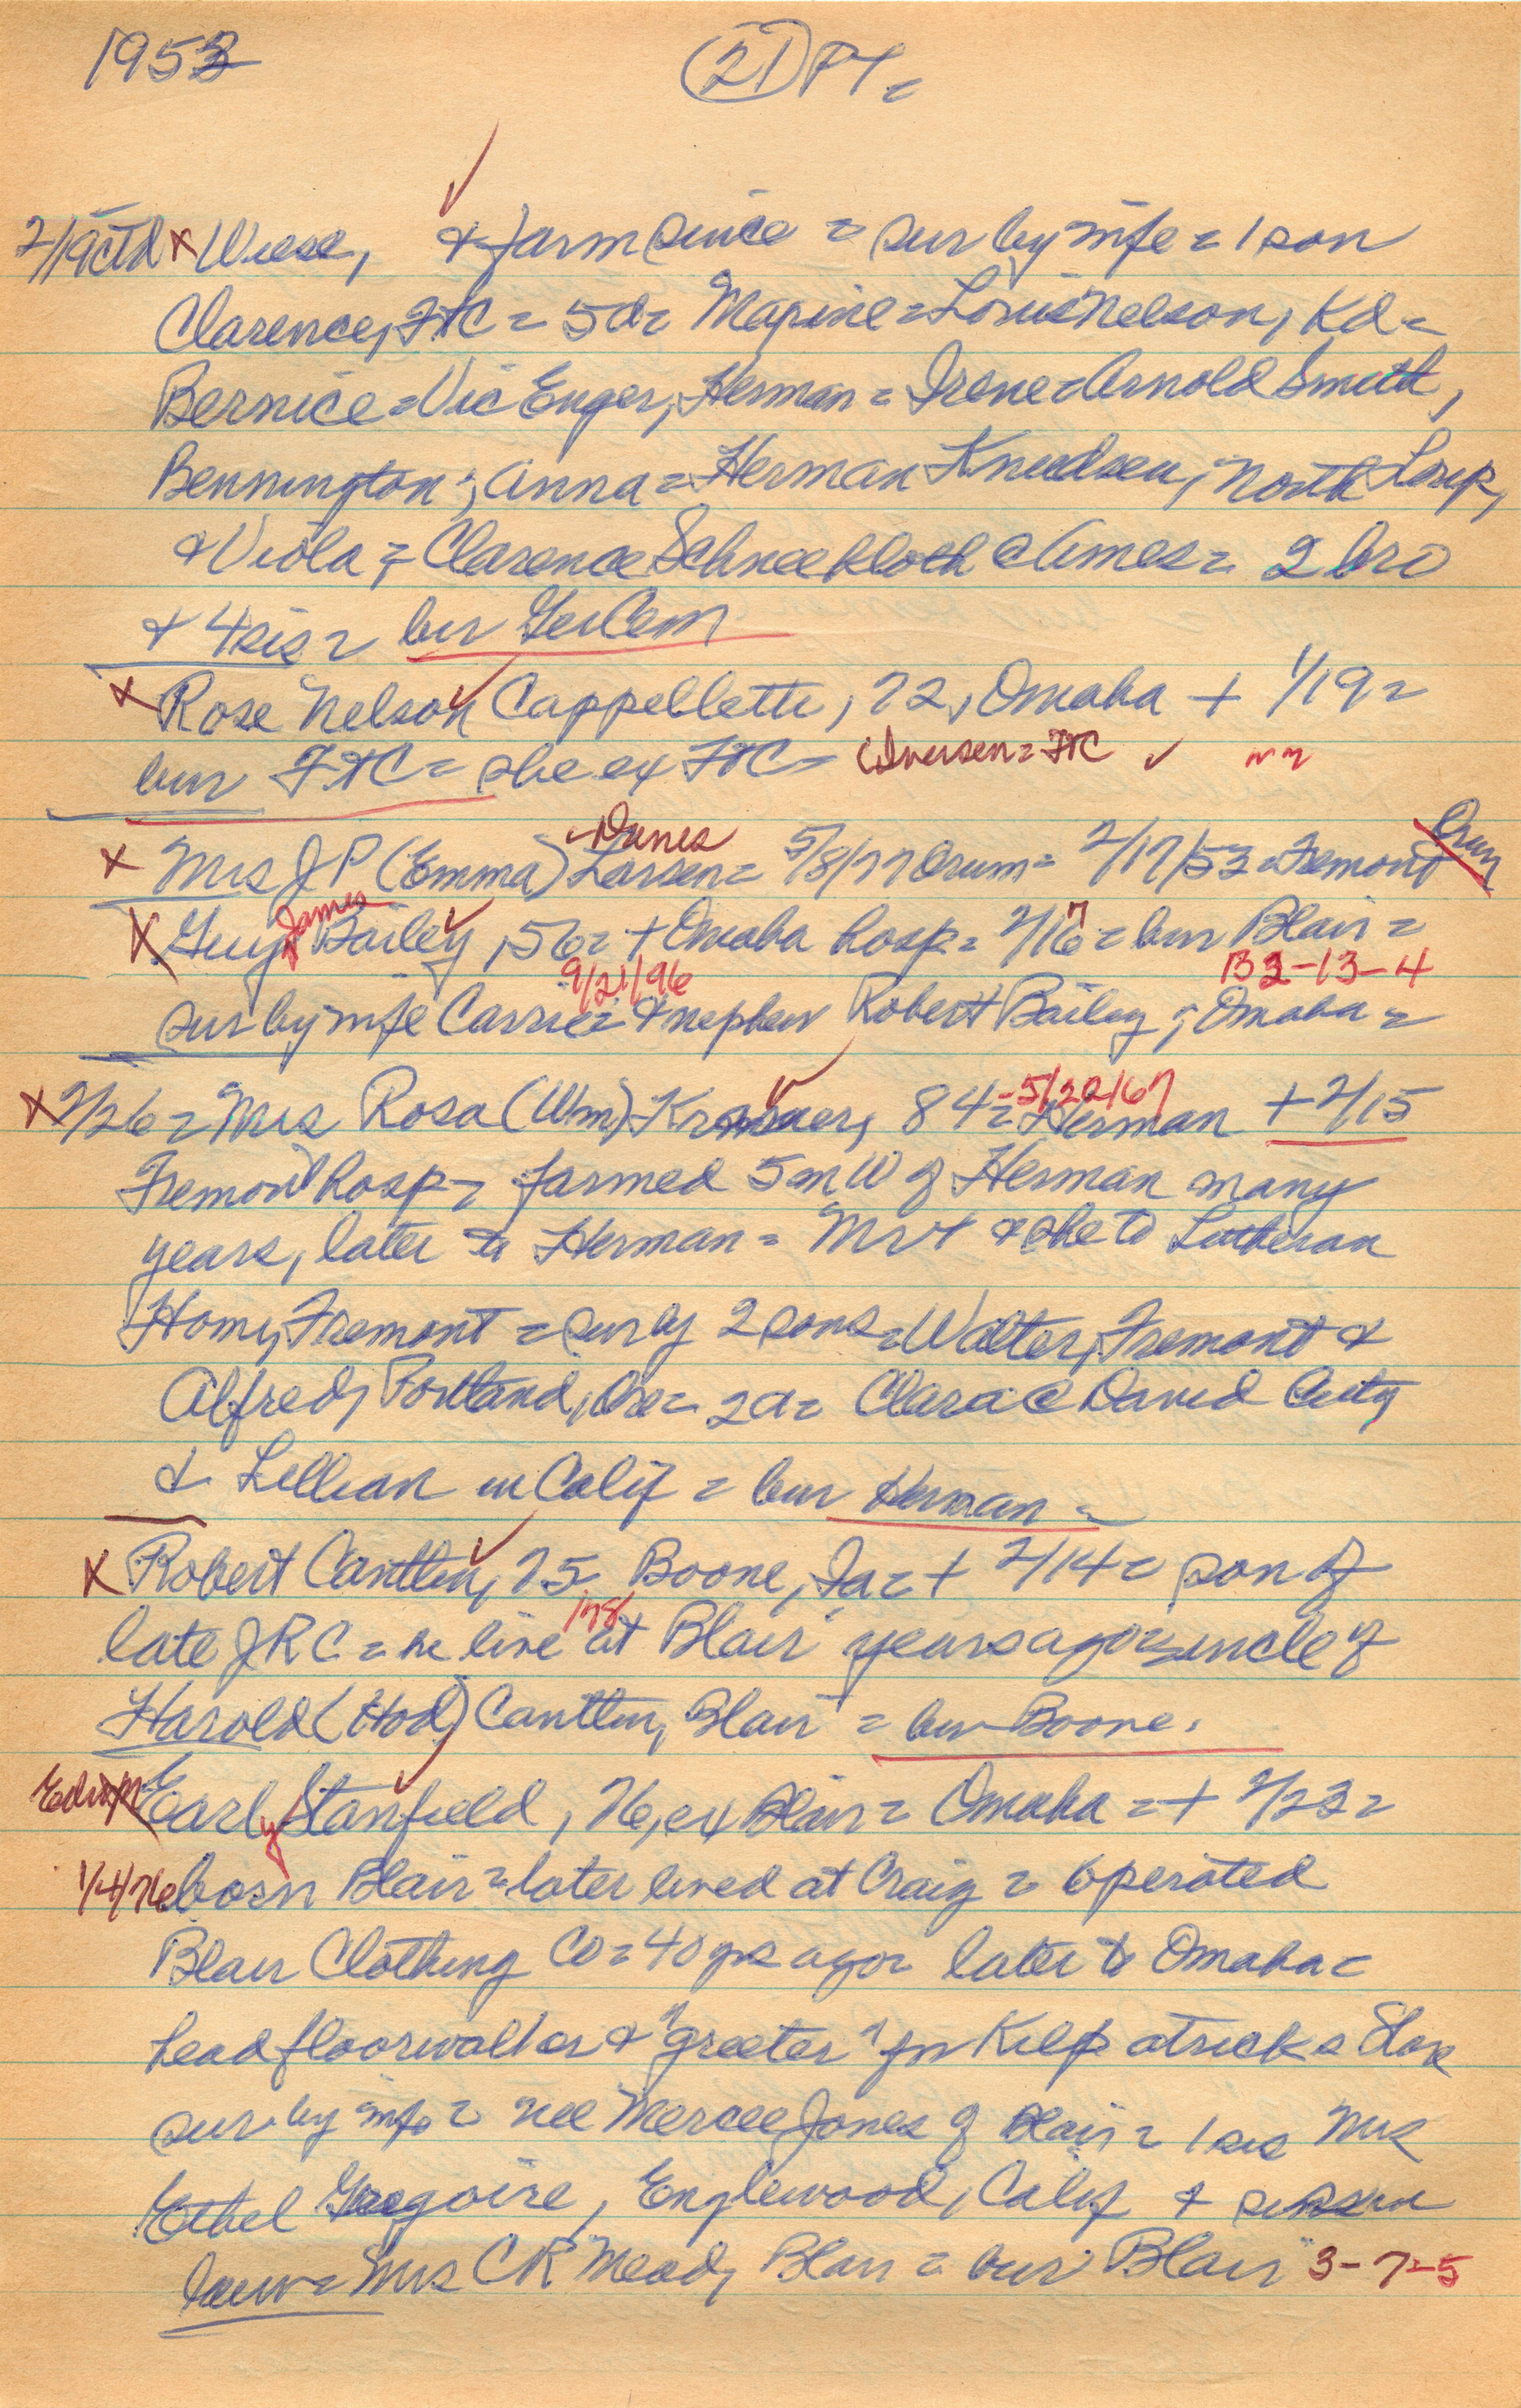 1953 (21) PT =
2/19 ctd x Wiese, & farm since = sur by wife = 1 son
Clarence, FtC = 5 d = Maxine = Louis Nelson, Kd =
Bernice = Vic Enger, Herman = Irene = Arnold Smith,
Bennington; Anna = Herman Knudsen, North Loup,
& Viola = Clarence Schneekloth @ Ames = 2 bro
& 4 sis = bur Cem
x Rose Nelson Cappellette, 72, Omaha + 1/19 =
bur FtC = she ex FtC = (Iversen = FtC
Danes
x Mrs J P (Emma) Larsen = 5/8/77 Orum = 2/17/53 = Fremont Orum
James
x Guy Bailey, 56 = + Omaha hosp = 2/17 = bur Blair =
9/21/96 B 2-13-4
sur by wife Carrie = & nephew Robert Bailey; Omaha =
-5/22/67
x 2/26 = Mrs Rosa (Wm) 84 = Herman + 2/15
Fremont hosp = farmed 5 m W of Herman many
years, later to Herman = Mr + & she to Lutheran
Home, Fremont = sur by 2 sons = Walter, Fremont &
Alfred, Portland, Ore = 2 d = Clara @ David City
& Lillian in Calif = bur Herman =
x Robert Cantlin, 75 Boone, Ia = + 2/14 = son of
178
late JRC = he live at Blair years ago = uncle of
Harold (Hod) Cantlin, Blair = bur Boone.
Edwin Earl Stanfield, 76, ex Blair = Omaha = + 2/23 =
1/4/76 born Blair = later lived at Craig = operated
Blair Clothing Co = 40 yrs ago = later to Omaha =
head floorwalker & "greeter" for Kilpatricks Store
sur by wife = nee Mercee Jones of Blair = 1 sis Mrs
Ethel Gregoire, Englewood, Calif & sis in
law = Mrs CR Mead, Blair = bur Blair 3-7-5